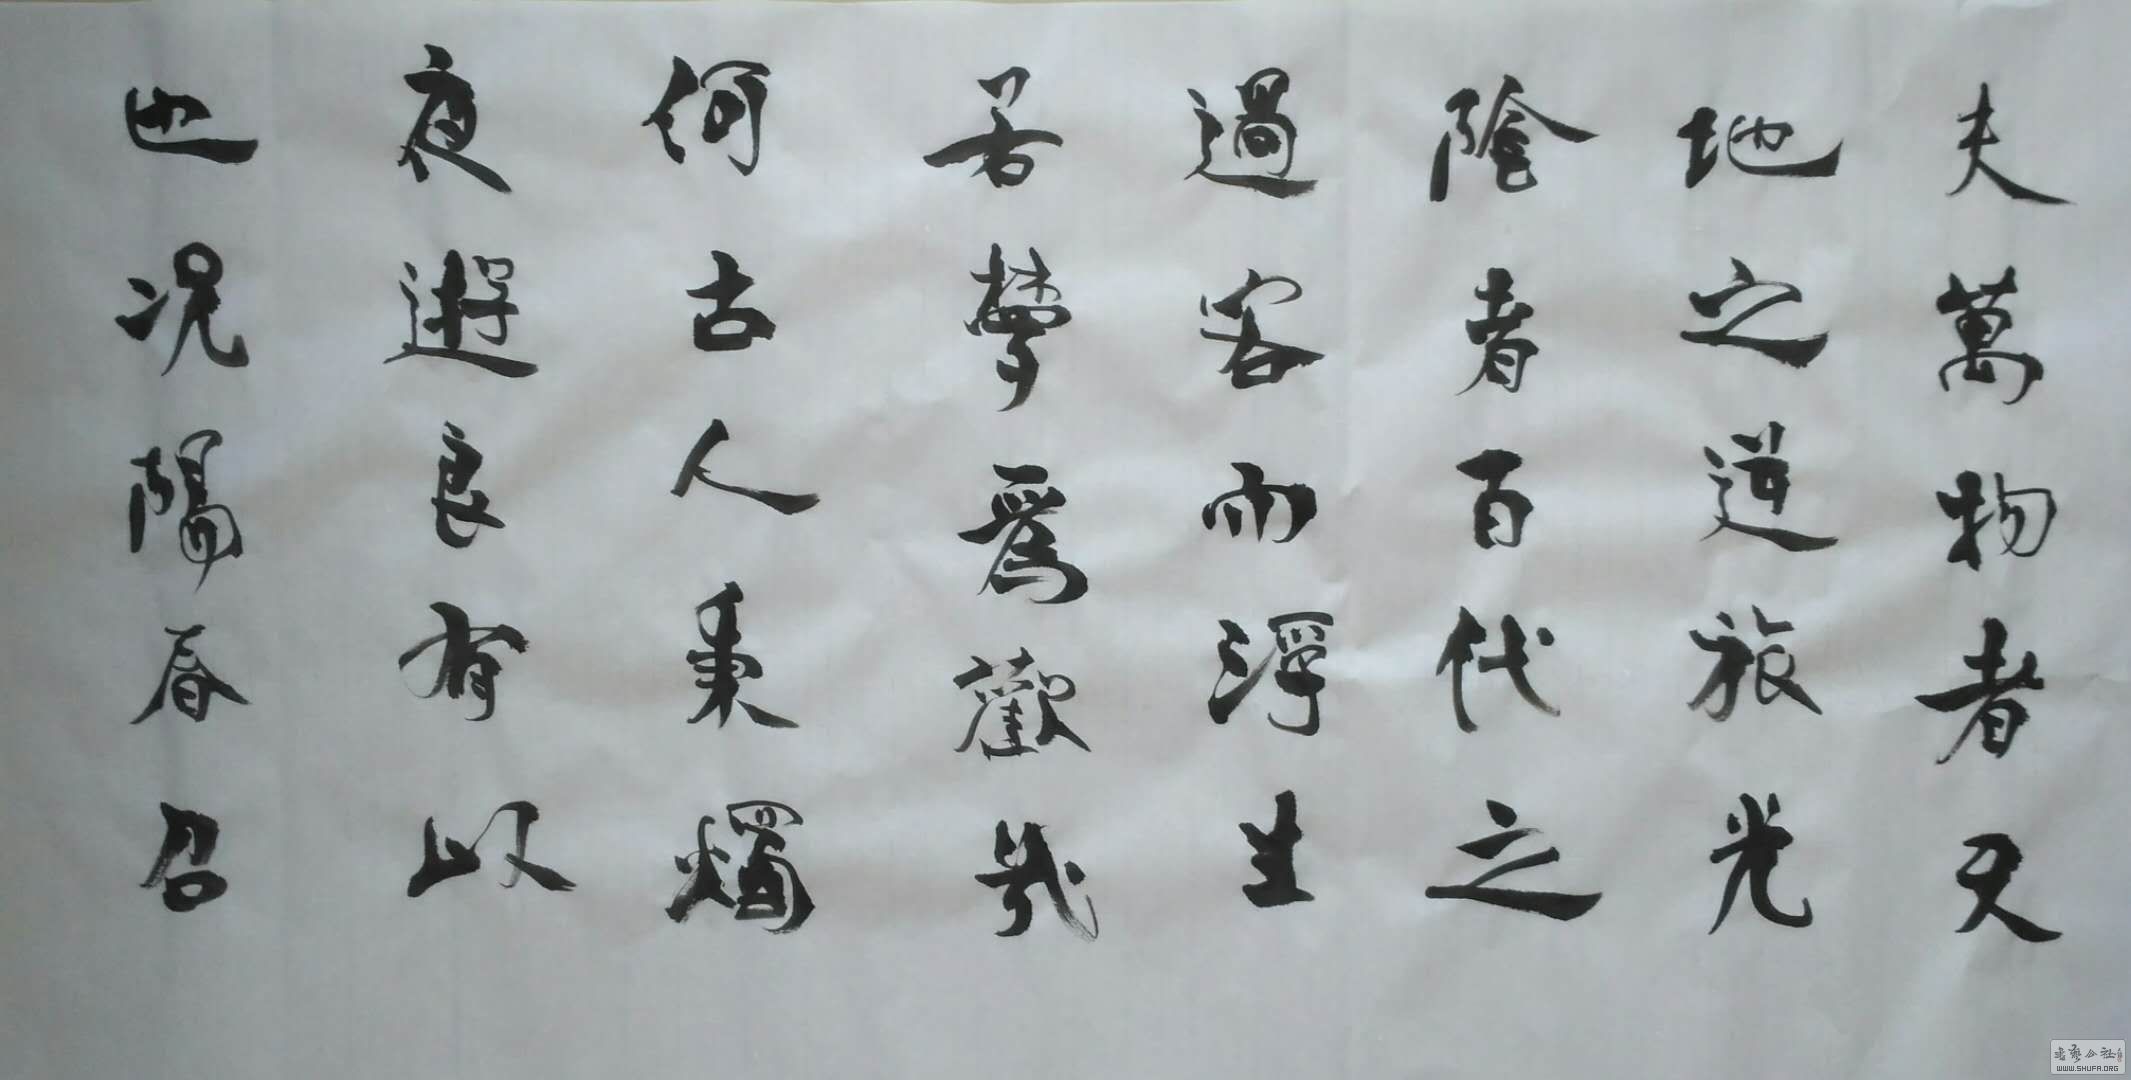 夫萬物者天
地之逆旅光
陰者百代之
過客而浮生
若夢爲歡幾
何古人秉燭
夜遊良有以
也况陽春召
WWW.SHUFA.ORG